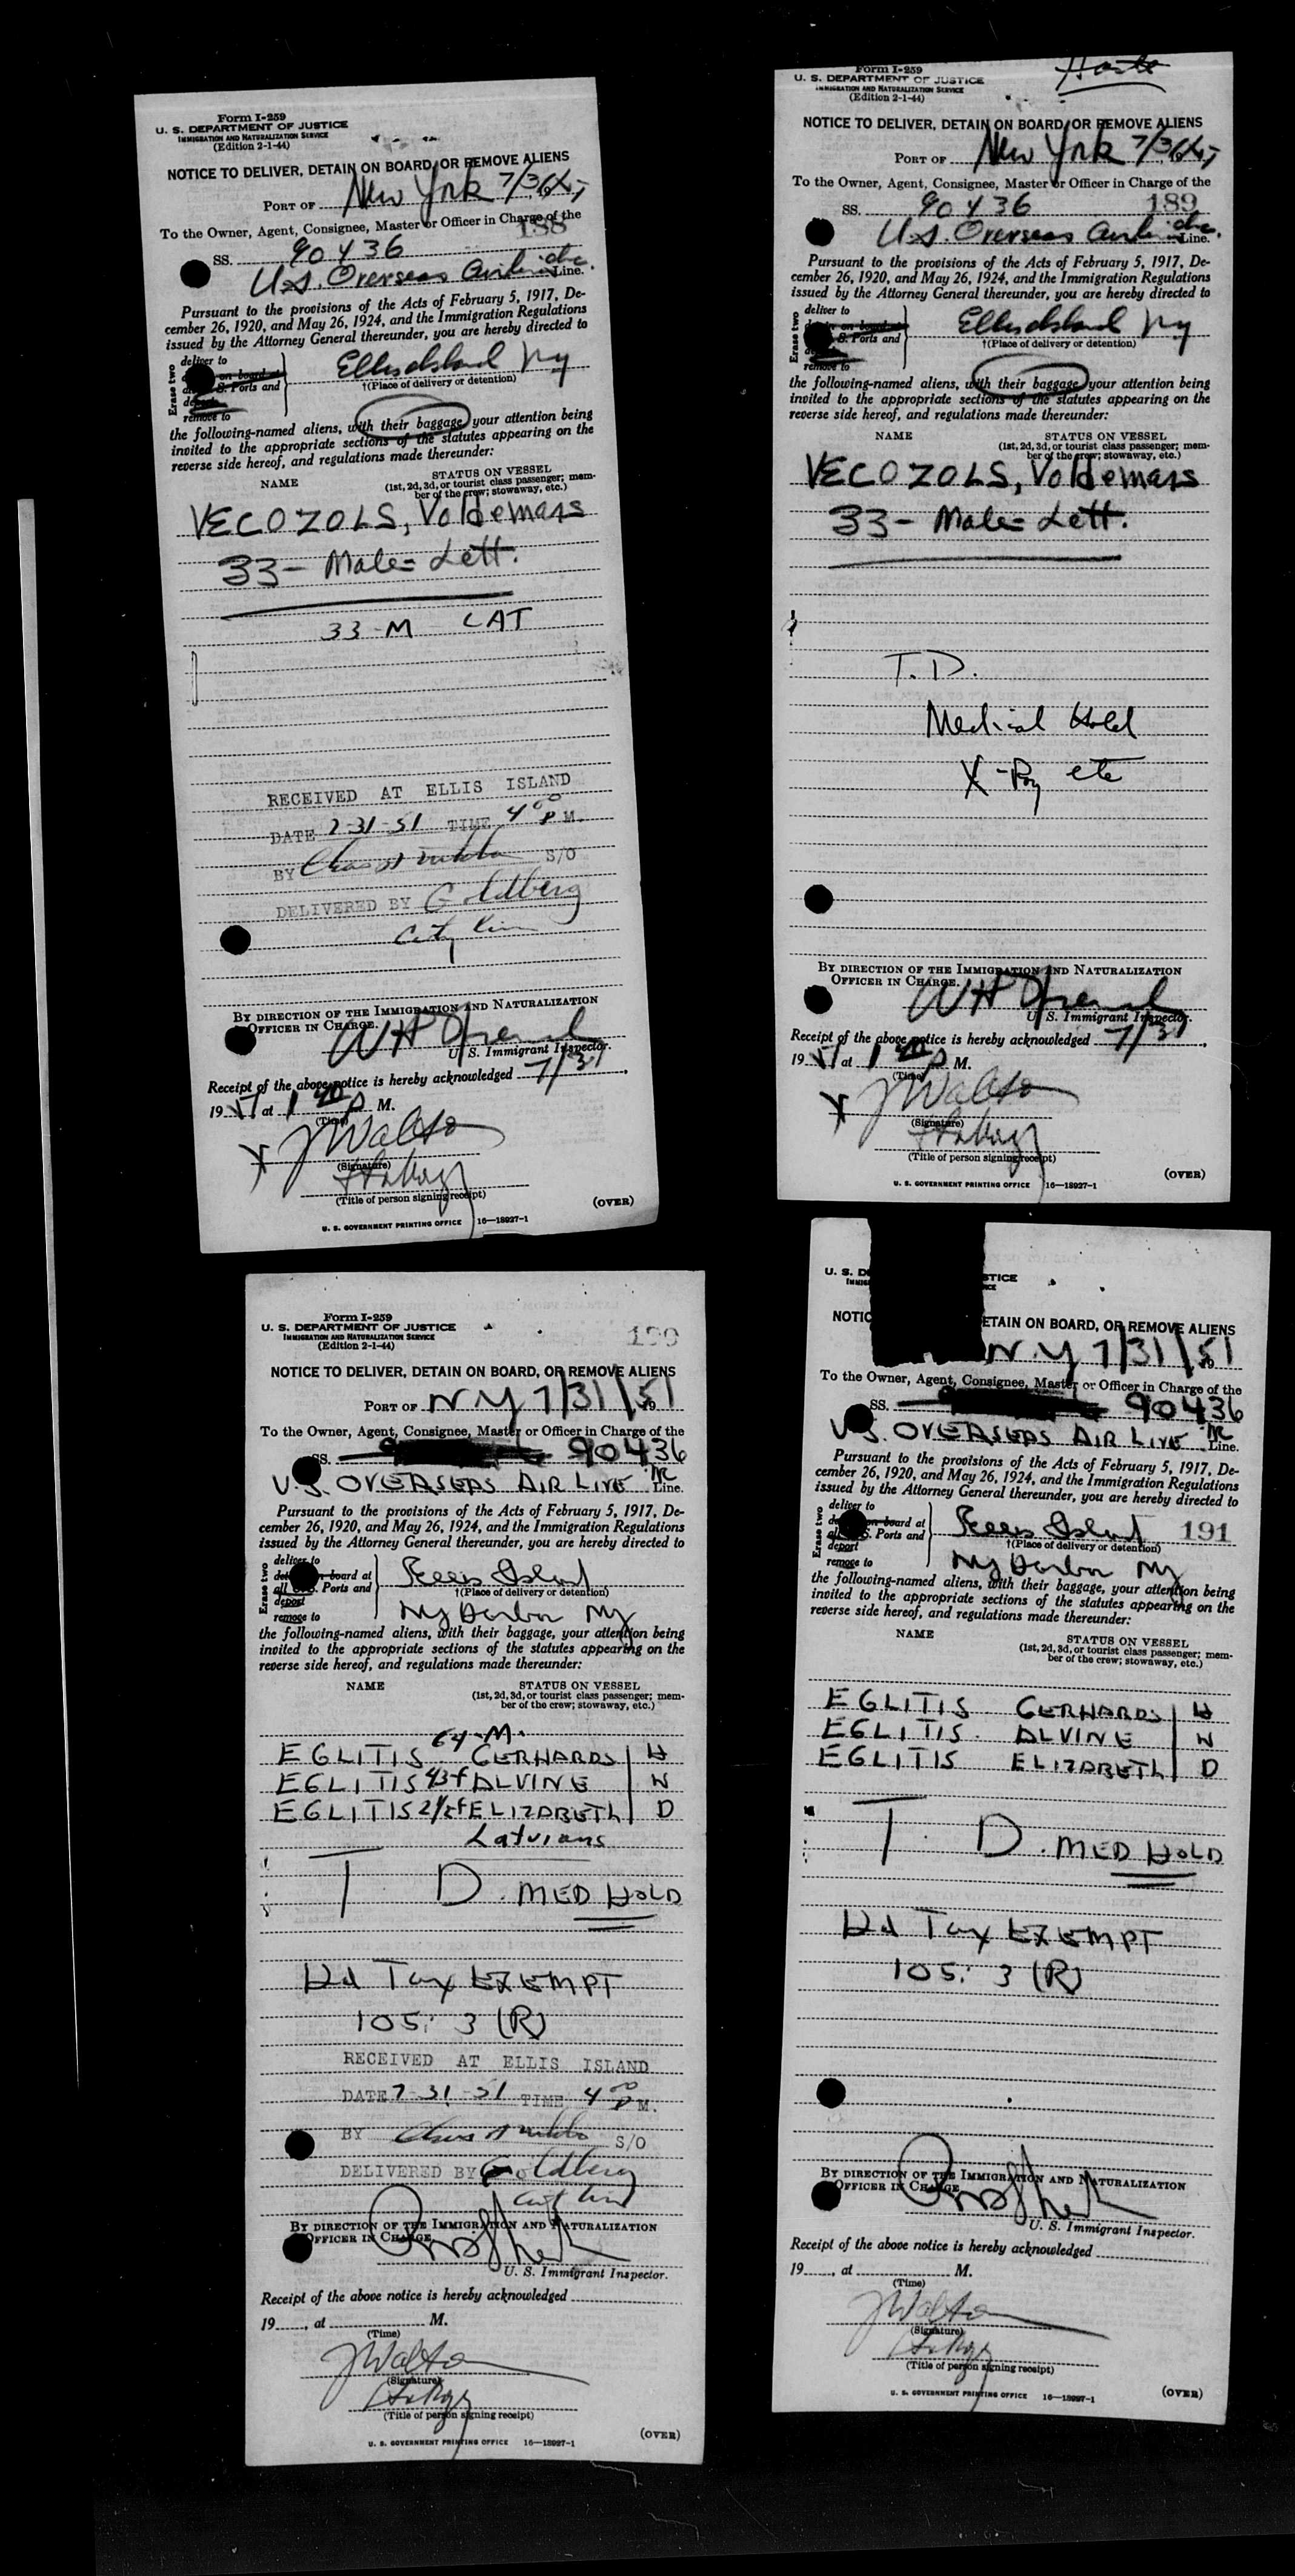 Form I-259
U. S. DEPARTMENT OF JUSTICE
IMMIGRATION AND NATURALIZATION SERVICE
(Edition 2-1-44)
NOTICE TO DELIVER, DETAIN ON BOARD, OR REMOVE ALIENS
PORT OF New York 7/31
To the Owner, Agent, Consignee, Master or Officer in Charge of the
188
SS. 90436
U.S. Overseas Line.
Pursuant to the provisions of the Acts of February 5, 1917, De-
cember 26, 1920, and May 26, 1924, and the Immigration Regulations
issued by the Attorney General thereunder, you are hereby directed to
Erase two
deliver to
on board at
S. Ports and
remove to
Ellis Island NY
†(Place of delivery or detention)
the following-named aliens, with their baggage, your attention being
invited to the appropriate sections of the statutes appearing on the
reverse side hereof, and regulations made thereunder:
NAME STATUS ON VESSEL
(1st, 2d, 3d, or tourist class passenger; mem-
ber of the crew; stowaway, etc.)
VECOZOLS, Voldemars
33- Male= Lett.
33-M LAT
RECEIVED AT ELLIS ISLAND
DATE 7-31-51 TIME 4 00 P M.
BY S/O
DELIVERED BY Goldberg
BY DIRECTION OF THE IMMIGRATION AND NATURALIZATION
OFFICER IN CHARGE.
U. S. Immigrant Inspector.
Receipt of the above notice is hereby acknowledged 7/31,
19 51 at 1 40 P M.
(Time)
X JWalton
(Signature)
(Title of person signing receipt)
(OVER)
U. S. GOVERNMENT PRINTING OFFICE 16—18927-1
Form I-259
U. S. DEPARTMENT OF JUSTICE
IMMIGRATION AND NATURALIZATION SERVICE
(Edition 2-1-44)
NOTICE TO DELIVER, DETAIN ON BOARD, OR REMOVE ALIENS
PORT OF New York 7/31
To the Owner, Agent, Consignee, Master or Officer in Charge of the
SS. 90436 189
U.S. Overseas Line.
Pursuant to the provisions of the Acts of February 5, 1917, De-
cember 26, 1920, and May 26, 1924, and the Immigration Regulations
issued by the Attorney General thereunder, you are hereby directed to
Erase two
deliver to
on board at
S. Ports and
remove to
Ellis Island NY
†(Place of delivery or detention)
the following-named aliens, with their baggage, your attention being
invited to the appropriate sections of the statutes appearing on the
reverse side hereof, and regulations made thereunder:
NAME STATUS ON VESSEL
(1st, 2d, 3d, or tourist class passenger; mem-
ber of the crew; stowaway, etc.)
VECOZOLS, Voldemars
33- Male= Lett.
T. D.
Medical Hold
X-Ray etc
BY DIRECTION OF THE IMMIGRATION AND NATURALIZATION
OFFICER IN CHARGE.
U. S. Immigrant Inspector.
Receipt of the above notice is hereby acknowledged 7/31,
19 51 at 1 40 P M.
(Time)
X JWalton
(Signature)
(Title of person signing receipt)
(OVER)
U. S. GOVERNMENT PRINTING OFFICE 16—18927-1
Form I-259
U. S. DEPARTMENT OF JUSTICE
IMMIGRATION AND NATURALIZATION SERVICE
(Edition 2-1-44)
190
NOTICE TO DELIVER, DETAIN ON BOARD, OR REMOVE ALIENS
PORT OF N Y 7/31/51
To the Owner, Agent, Consignee, Master or Officer in Charge of the
SS. 90436
U.S. OVERSEAS AIR LINE Line.
Pursuant to the provisions of the Acts of February 5, 1917, De-
cember 26, 1920, and May 26, 1924, and the Immigration Regulations
issued by the Attorney General thereunder, you are hereby directed to
Erase two
deliver to
board at
all Ports and
deport
remove to
Ellis Island
†(Place of delivery or detention)
Ny Harbor Ny
the following-named aliens, with their baggage, your attention being
invited to the appropriate sections of the statutes appearing on the
reverse side hereof, and regulations made thereunder:
NAME STATUS ON VESSEL
(1st, 2d, 3d, or tourist class passenger; mem-
ber of the crew; stowaway, etc.)
64-M.
EGLITIS GERHARDS | H
EGLITIS 43f ALVINE | W
EGLITIS 21/sf ELIZABETH | D
Latvians
T. D. MED HOLD
Hd Tax EXEMPT
105: 3 (R)
RECEIVED AT ELLIS ISLAND
DATE 7-31-51 TIME 4 00 P M.
BY S/O
DELIVERED BY Goldberg
BY DIRECTION OF THE IMMIGRATION AND NATURALIZATION
OFFICER IN CHARGE.
U. S. Immigrant Inspector.
Receipt of the above notice is hereby acknowledged
19 , at M.
(Time)
JWalton
(Signature)
(Title of person signing receipt)
(OVER)
U. S. GOVERNMENT PRINTING OFFICE 16—18927-1
U. S. D STICE
NOTIC ETAIN ON BOARD, OR REMOVE ALIENS
N. Y 7/31/51
To the Owner, Agent, Consignee, Master or Officer in Charge of the
SS. 90436
U.S. OVERSEAS AIR LINE Line.
Pursuant to the provisions of the Acts of February 5, 1917, De-
cember 26, 1920, and May 26, 1924, and the Immigration Regulations
issued by the Attorney General thereunder, you are hereby directed to
Erase two
deliver to
on board at
all S. Ports and
deport
remove to
Ellis Island 191
†(Place of delivery or detention)
Ny Harbor Ny
the following-named aliens, with their baggage, your attention being
invited to the appropriate sections of the statutes appearing on the
reverse side hereof, and regulations made thereunder:
NAME STATUS ON VESSEL
(1st, 2d, 3d, or tourist class passenger; mem-
ber of the crew; stowaway, etc.)
EGLITIS GERHARDS | H
EGLITIS. ALVINE | W
EGLITIS ELIZABETH | D
T. D. MED HOLD
Hd Tax EXEMPT
105: 3 (R)
BY DIRECTION OF THE IMMIGRATION AND NATURALIZATION
OFFICER IN CHARGE
U. S. Immigrant Inspector.
Receipt of the above notice is hereby acknowledged
19 , at M.
(Time)
JWalton
(Signature)
(Title of person signing receipt)
(OVER)
U. S. GOVERNMENT PRINTING OFFICE 16—18927-1